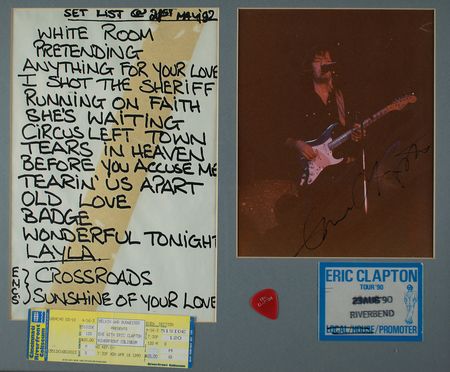 SET LIST @ 21ST MAY 92
WHITE ROOM
PRETENDING
ANYTHING FOR YOUR LOVE
I SHOT THE SHERIFF
RUNNING ON FAITH
SHE'S WAITING
CIRCUS LEFT TOWN
TEARS IN HEAVEN
BEFORE YOU ACCUSE ME
TEARIN' US APART
OLD LOVE
BADGE
WONDERFUL TONIGHT
LAYLA.
ENC) CROSSROADS
SUNSHINE OF YOUR LOVE
PRESENTS
RIVERFRONT COLISEUM
Riverfront
Coliseum
120
ERIC CLAPTON
ERIC CLAPTON
TOUR '90
23 AUG '90
RIVERBEND
LOCAL/HOUSE/PROMOTER